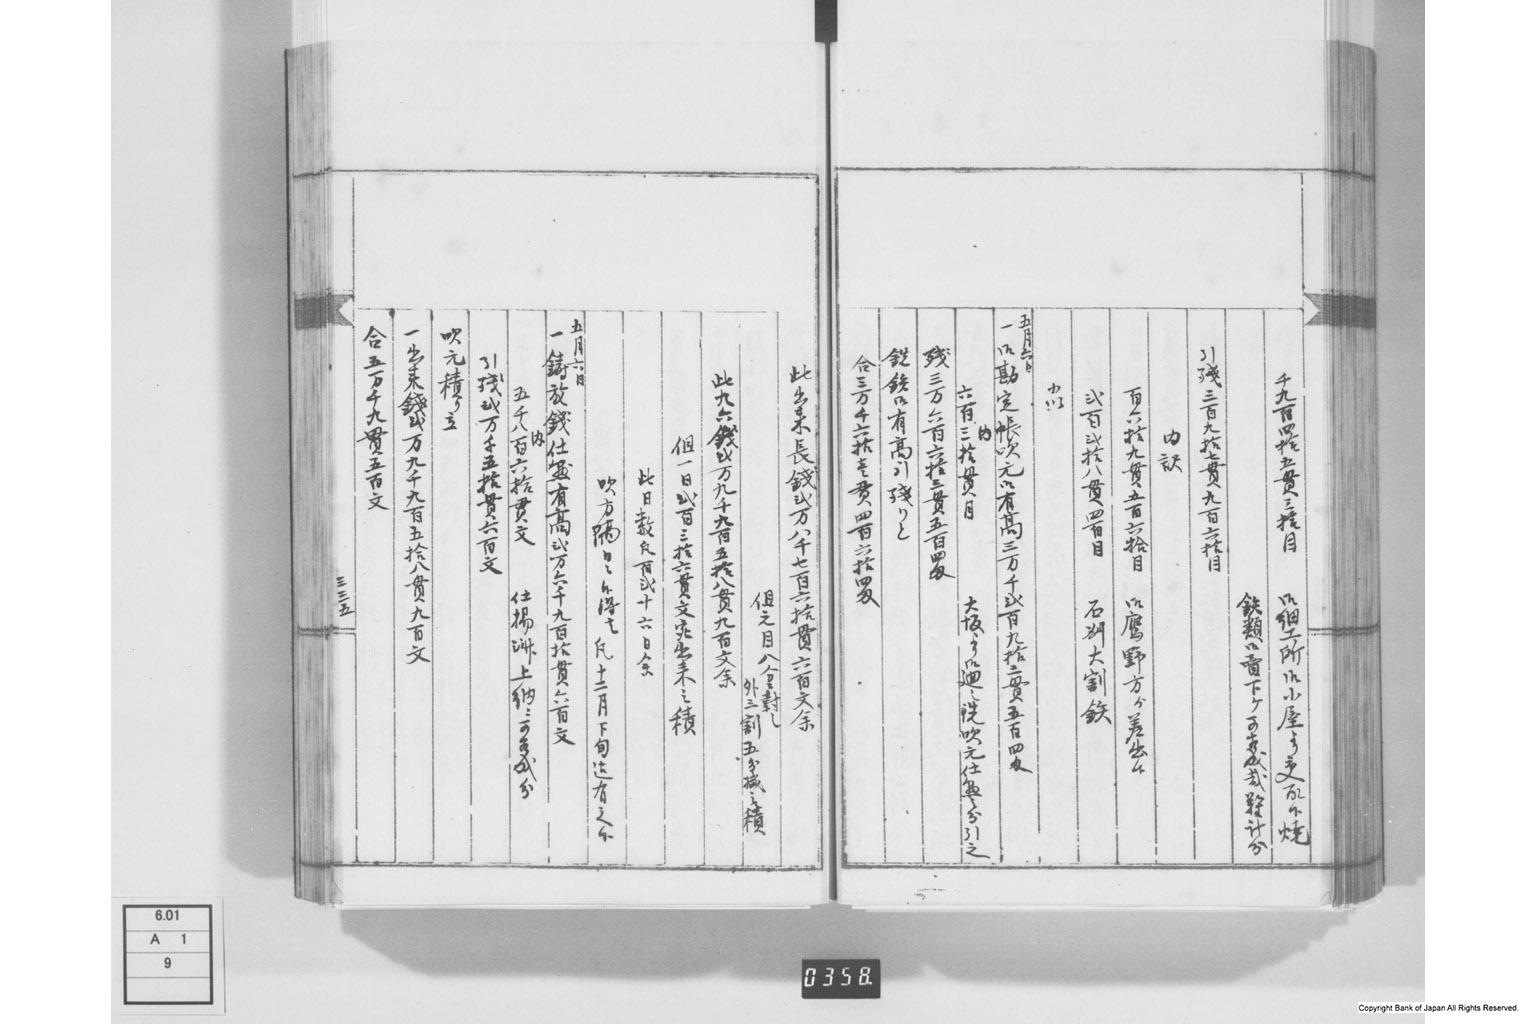 千九百四拾五貫三拾目 御細工所御小屋ゟ交取候焼
鉄類御売下ケ可相成分
引残三百九拾七貫九百六拾目
内訳
百六拾九貫五百六拾目 御鷹野方ゟ差出候
弐百弐拾八貫四百目 石州大割鉄
五月六日
一御勘定帳吹元御有高三万千弐百九拾三貫五百四匁
内
六百三拾貫目 大坂ゟ御廻之銑吹元仕
残三万六百六拾三貫五百四匁
銑鉄御有高引残り
合三万千六拾壱貫四百六拾四匁
此出来長銭弐万八千七百六拾貫六百文余
但元目八分
外三割五分減之積
此九六銭弐万九千九百五拾八貫九百文余
但一日弐百三拾六貫文宛出来之積
此日数凡百弐十六日余
吹方隔日ニ候得者凡十二月下旬迄有之候
五月六日
一鋳放銭仕有高弐万六千九百拾貫六百文
内
五千八百六拾貫文 仕揚洲上納ニ可相成分
引残弐万千五拾貫六百文
吹元積り立
一出来銭弐万九千九百五拾八貫九百文
合五万千九貫五百文
三三五
6.01
A 1
9
0358.
Copyright Bank of Japan All Rights Reserved.